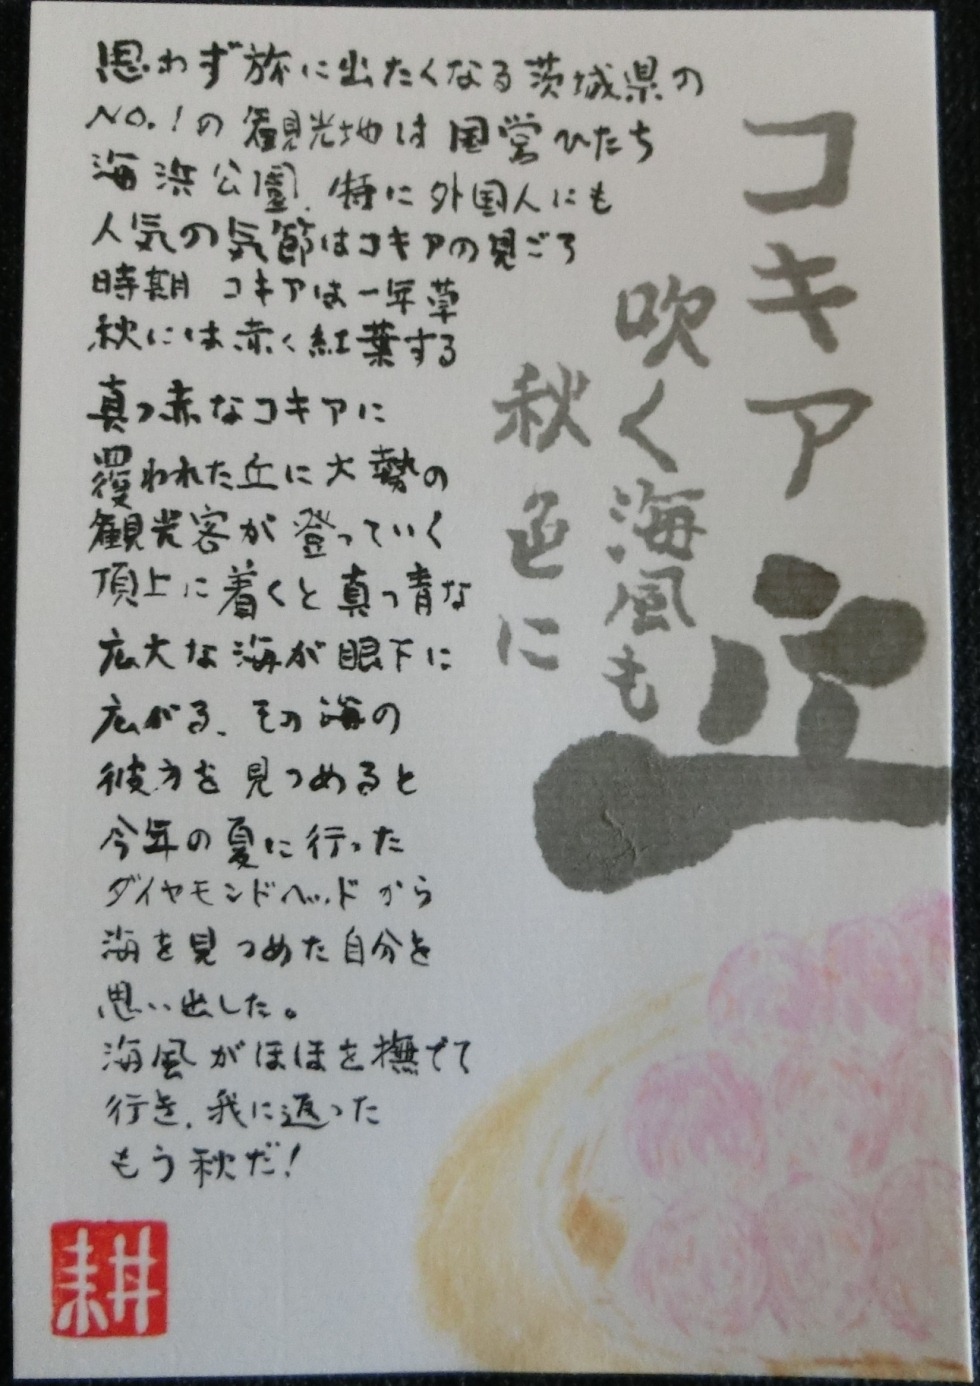 思わず旅に出たくなる茨城県の
NO.1の観光地は国営ひたち
海浜公園、特に外国人にも
人気の気節はコキアの見ごろ
時期 コキアは一年草
秋には赤く紅葉する
真っ赤なコキアに
覆われた丘に大勢の
観光客が登っていく
頂上に着くと真っ青な
広大な海が眼下に
広がる、その海の
彼方を見つめると
今年の夏に行った
ダイヤモンドヘッドから
海を見つめた自分を
思い出した。
海風がほほを撫でて
行き、我に返った
もう秋だ!
コキア丘
吹く海風も
秋色に
耕